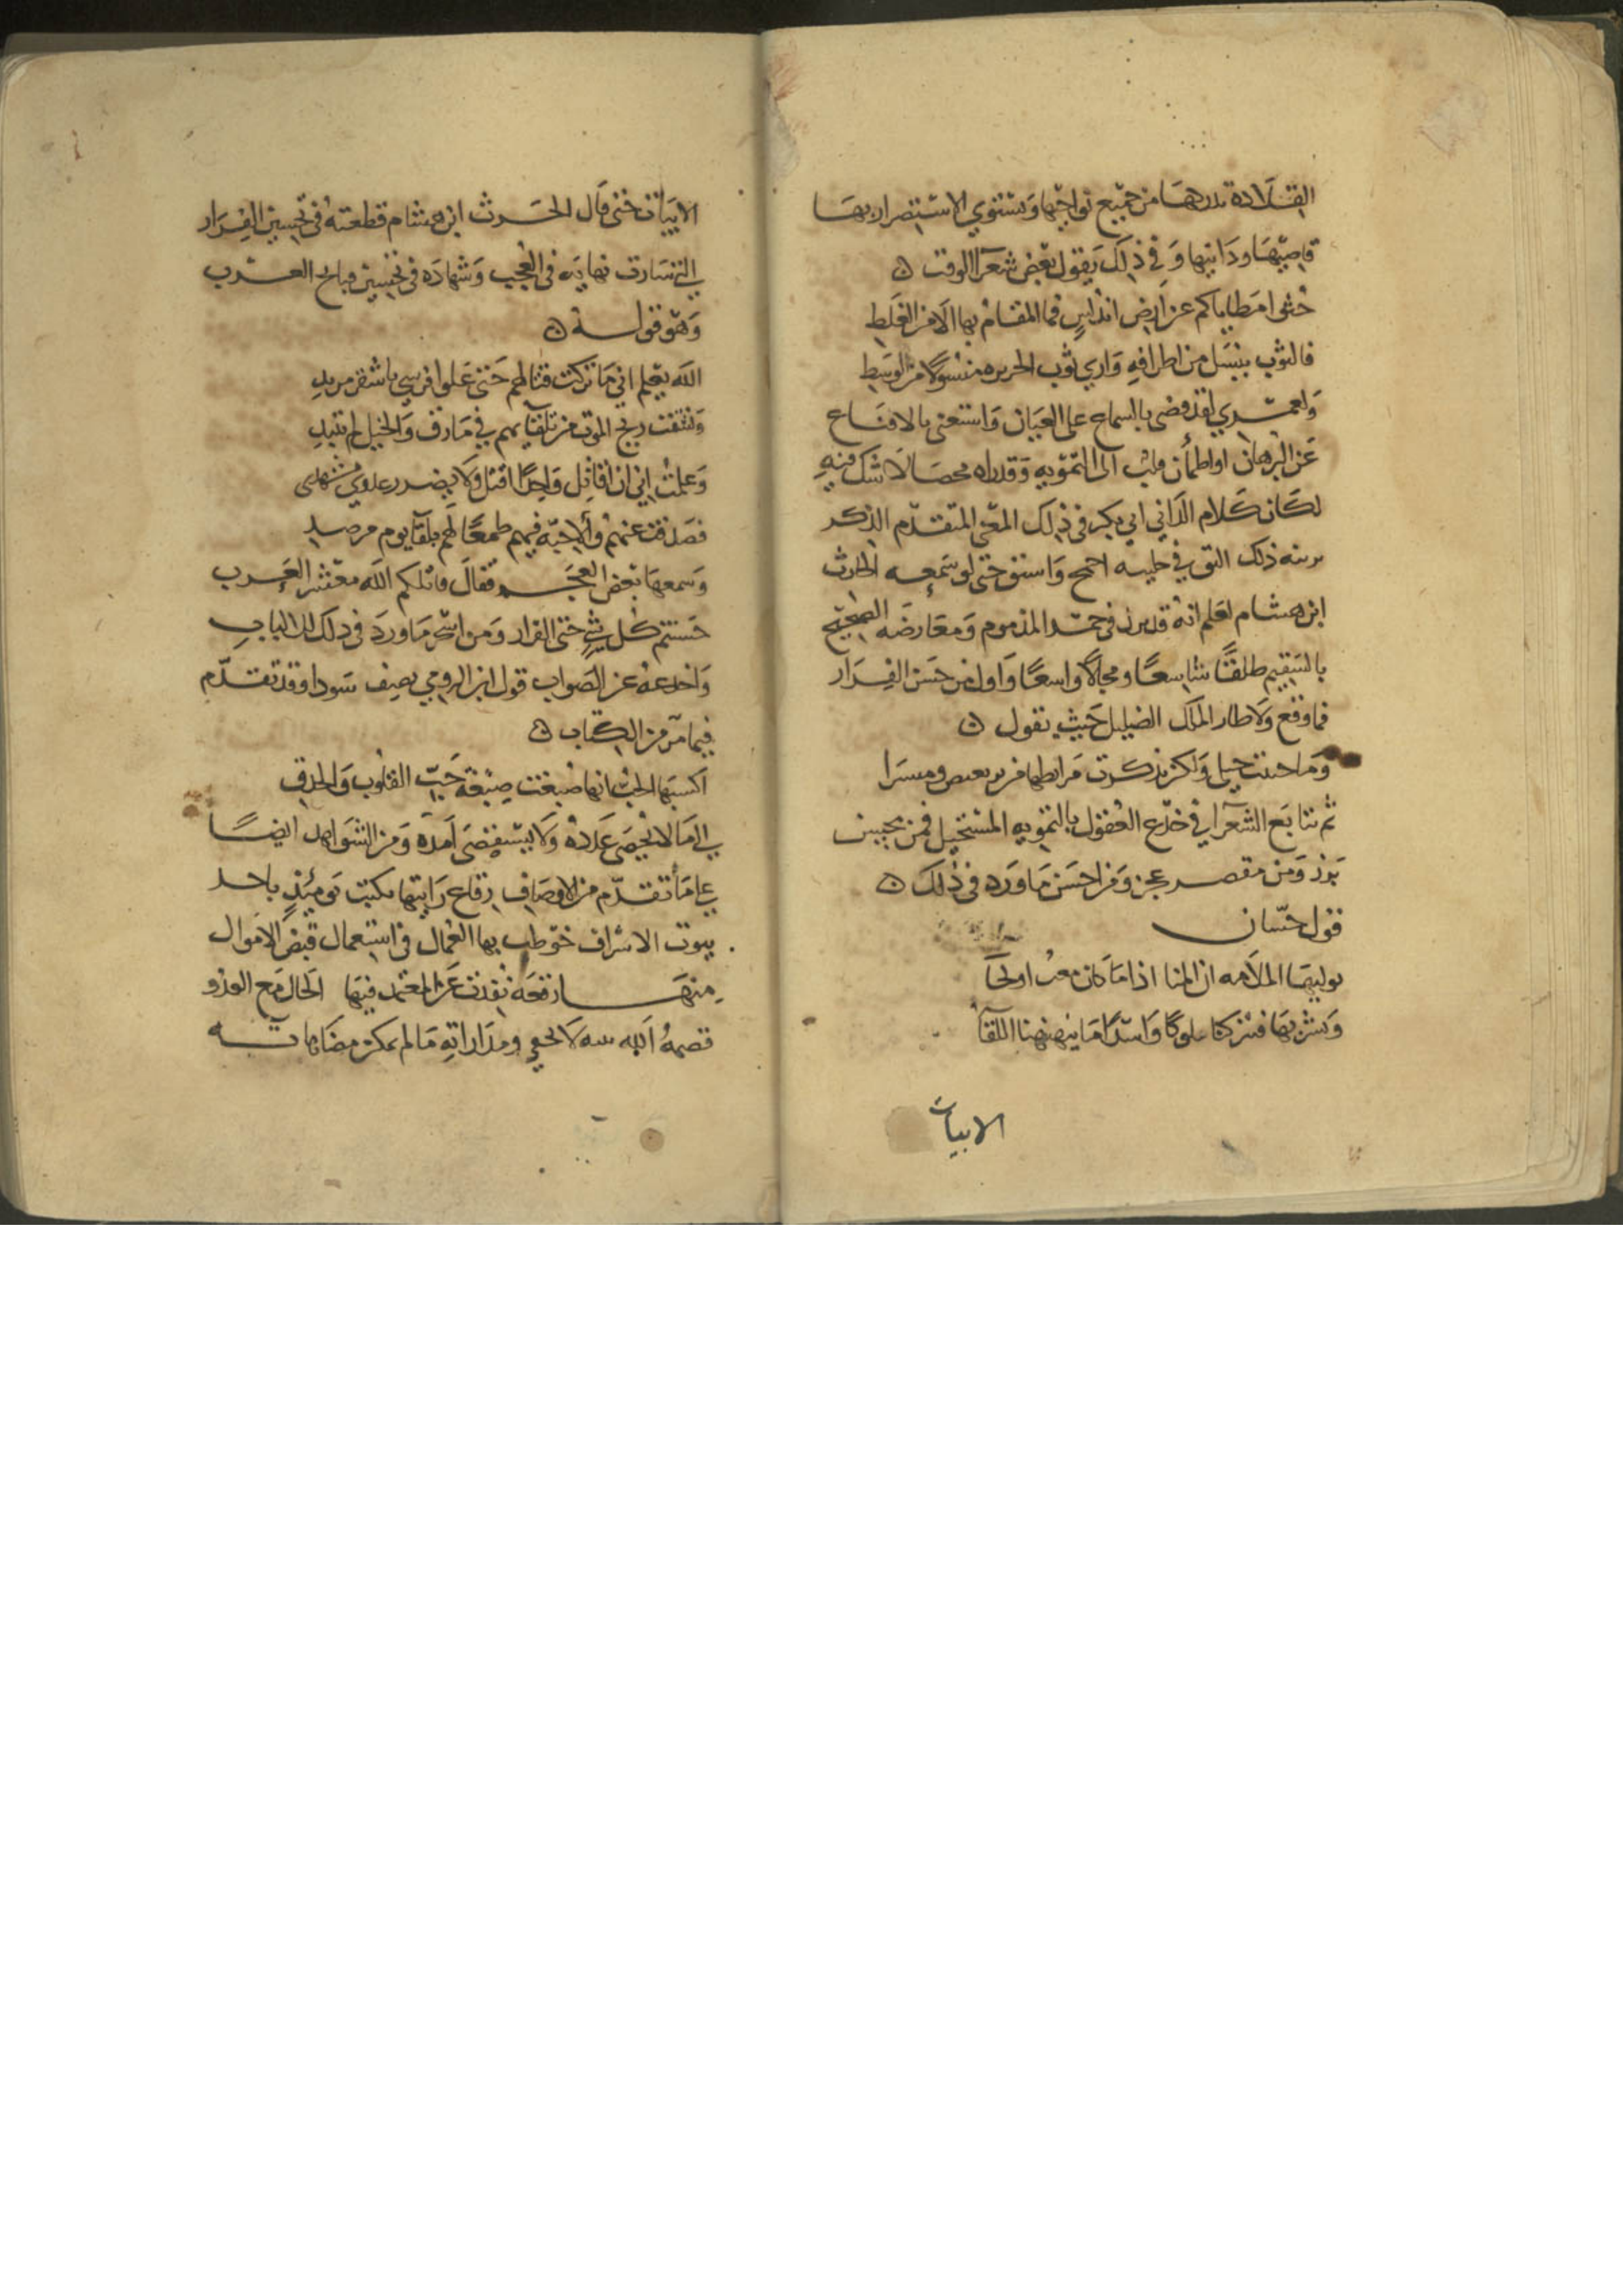 القلادة بدرهما من جميع نواحيها ويستوي الاستبصار بها
قاصيها ودانيها وفي ذلك يقول بعض شعراء الوقت
حثوا مطاياكم عن ارض اندلس فما المقام بها الا من الغلط
فالثوب ينسل من اطرافه واري ثوب الجزيره منسولا من الوسط
ولعمري لقد قضى بالسماع على العيان واستغنى بالاقناع
عن البرهان او اطمأن قلب الى التمويه وقد راه محصا لا شك فيه
لكان كلام الداني ابي بكر في ذلك المعنى المتقدم الذكر
ذلك التي في حتى لو سمعه الحارث
ابن هشام لعلم انه قد برز في حمد المذموم ومعارضه الصحيح
بالسقيم طلقا شاسعا ومجالا واسعا واول من حسن الفرار
فما وقع ولا طار الملك الضليل حيث يقول
وما جبنت خيلي ولكن تذكرت مرابطها من بربعيص وميسرا
ثم تتابع الشعرا في خدع العقول بالتمويه المستحيل فمن مجيد
برز ومن مقصر عجز ومن احسن ما ورد في ذلك
قول حسان
نوليها الملامه ان المنا اذا ما كان مغث او لحا
ونشربها فتتركنا ملوكا واسدا ما ينهنهنا اللقآ
الابيات
الابيات حتى قال الحرث ابن هشام قطعته في تحسين الفرار
التي سارت نهايه في العجب وشهاده في تحسين قبايح العرب
وهو قوله
الله يعلم اني ما تركت قتالهم حتى علوا فرسي باشقر مزبد
وتنشقت ريح الموت من تلقايهم في مازق والخيل لم تتبدد
وعلمت اني ان اقاتل واحدا اقتل ولا يضرر عدوي مشهدي
فصدفت عنهم والاحبة فيهم طمعا لهم بلقآ يوم مرصد
وسمعها بعض العجم فقال قاتلكم الله معشر العرب
حسنتم كل شي حتى الفرار ومن اشهر ما ورد في ذلك الباب
واخدعه عن الصواب قول ابن الرومي يصف سودا وقد تقدم
فيما مر من الكتاب
اكسبها الحب انها صبغت صبغة حب القلوب والحدق
الي ما لا يحصى عدده ولا يستقصى امده ومن الشواهد ايضا
علي ما تقدم من الاوصاف رقاع رايتها كتبت يومئذ باحد
بيوت الاشراف خوطب بها العمال في استعمال قبض الاموال
منها رقعة نفذت عن المعتمد فيها الحال مع العدو
قصمه الله لا تخفى ومداراته ما لم تمكن مضاياته